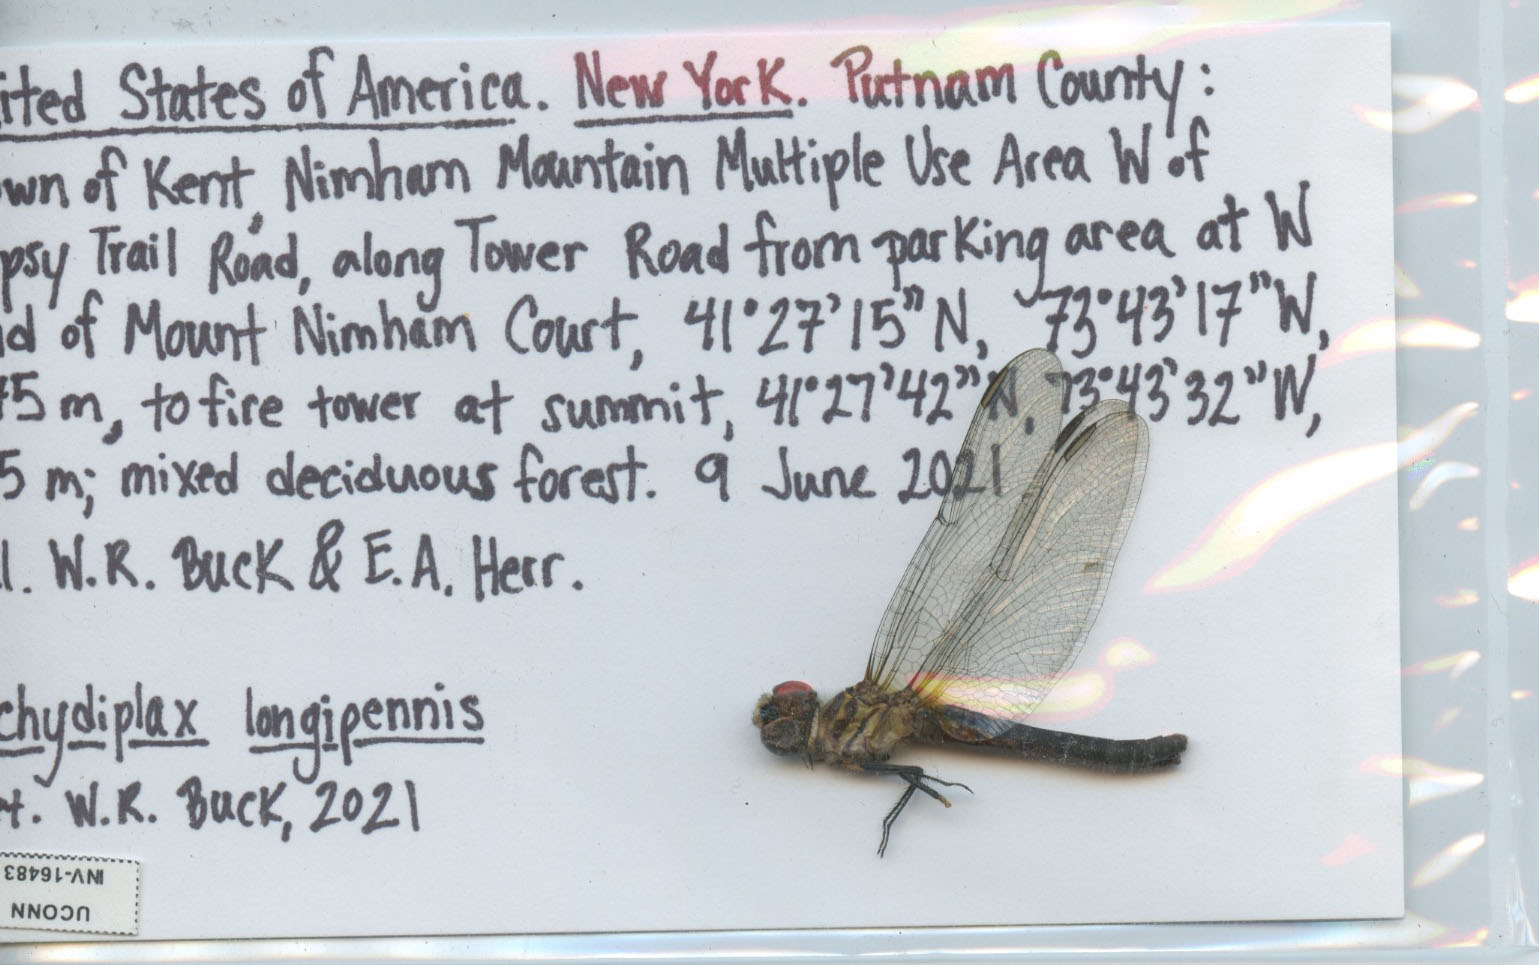 ited States of America. New York. Putnam County:
wn of Kent, Nimham Mountain Multiple Use Area W of
psy Trail Road, along Tower Road from parking area at W
d of Mount Nimham Court, 41°27'15"N, 73°43'17"W,
5 m, to fire tower at summit, 41°27'42"N, 73°43'32"W,
5 m; mixed deciduous forest. 9 June 2021
l. W.R. Buck & E.A. Herr.
chydiplax longipennis
t. W.R. Buck, 2021
UCONN
INV-16483